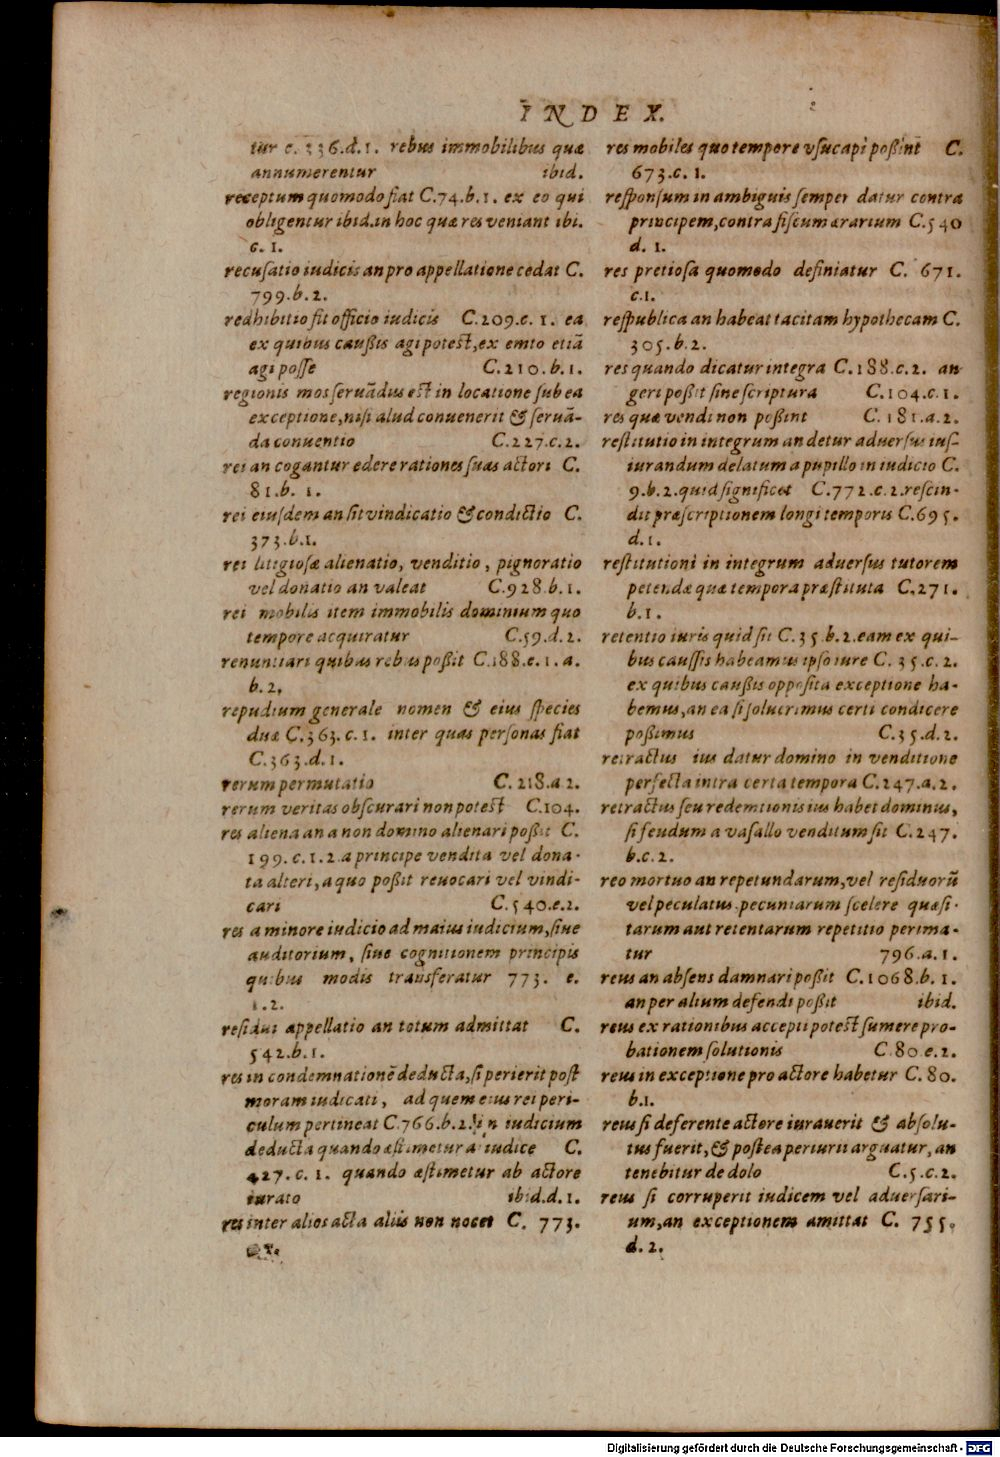 INDEX.
tur c. 336.d.1. rebus immobilibus quæ
annumerentur ibid.
receptum quomodo fiat C.74.b.1. ex eo qui
obligentur ibid.in hoc quæ res veniant ibi.
c. 1.
recusatio iudicis an pro appellatione cedat C.
799.b.2.
redhibitio fit officio iudicis C.209.c. 1. ea
ex quibus caußis agi potest,ex emto etiã
agi posse C.210.b.1.
regionis mos seruãdus est in locatione sub ea
exceptione,nisi alud conuenerit & seruã-
da conuentio C.227.c.2.
rei an cogantur edere rationes suas actori C.
81.b. 1.
rei eiusdem an sit vindicatio & condictio C.
373.b.1.
rei litigiosæ alienatio, venditio, pignoratio
vel donatio an valeat C.928.b.1.
rei mobilis item immobilis dominium quo
tempore acquiratur C.59.d.2.
renuntiari quibus rebus poßit C.188.e.1.a.
b.2.
repudium generale nomen & eius species
duæ C.363.c.1. inter quas personas fiat
C.363.d.1.
rerum permutatio C.218.a 2.
rerum veritas obscurari non potest C.104.
res aliena an a non domino alienari poßit C.
199.c.1.2.a principe vendita vel dona-
ta alteri,a quo poßit reuocari vel vindi-
cari C.540.e.2.
res a minore iudicio ad maius iudicium,siue
auditorium, siue cognitionem principis
quibus modis transferatur 773. e.
1.2.
residui appellatio an totum admittat C.
542.b.1.
res in condemnationẽ deducta,si perierit post
moram iudicati, ad quem eius rei peri-
culum pertineat C.766.b.2. in iudicium
deducta quando æstimetur a iudice C.
427.c.1. quando æstimetur ab actore
iurato ibid.d.1.
res inter alios acta aliis non nocet C. 773.
res mobiles quo tempore vsucapi poßint C.
673.c.1.
responsum in ambiguis semper datur contra
principem,contra fiscum ærarium C.540
d. 1.
res pretiosa quomodo definiatur C. 671.
c.1.
respublica an habeat tacitam hypothecam C.
305.b.2.
res quando dicatur integra C.188.c.2. an
geri poßit sine scriptura C.104.c.1.
res quæ vendi non poßint C. 181.a.2.
restitutio in integrum an detur aduersus ius-
iurandum delatum a pupillo in iudicio C.
9.b.2.quid significet C.772.c.2.rescin-
dit præscriptionem longi temporis C.695.
d.1.
restitutioni in integrum aduersus tutorem
petendæ quæ tempora præstituta C.271.
b.1.
retentio iuris quid sit C.35.b.2.eam ex qui-
bus caussis habeamus ipso iure C. 35.c.2.
ex quibus caußis opposita exceptione ha-
bemus,an ea si soluerimus certi condicere
poßimus C.35.d.2.
retractus ius datur domino in venditione
perfecta intra certa tempora C.247.a.2.
retractus seu redemtionis ius habet dominus,
si feudum a vasallo venditum sit C.247.
b.c.2.
reo mortuo an repetundarum,vel residuorũ
vel peculatus pecuniarum scelere quæsi-
tarum aut retentarum repetitio perima-
tur 796.a.1.
reus an absens damnari poßit C.1068.b.1.
an per alium defendi poßit ibid.
reus ex rationibus accepti potest sumere pro-
bationem solutionis C.80.e.2.
reus in exceptione pro actore habetur C.80.
b.1.
reus si deferente actore iurauerit & absolu-
tus fuerit,& postea periurii arguatur,an
tenebitur de dolo C.5.c.2.
reus si corruperit iudicem vel aduersari-
um,an exceptionem amittat C. 755.
d.2.
Digitalisierung gefördert durch die Deutsche Forschungsgemeinschaft - DFG